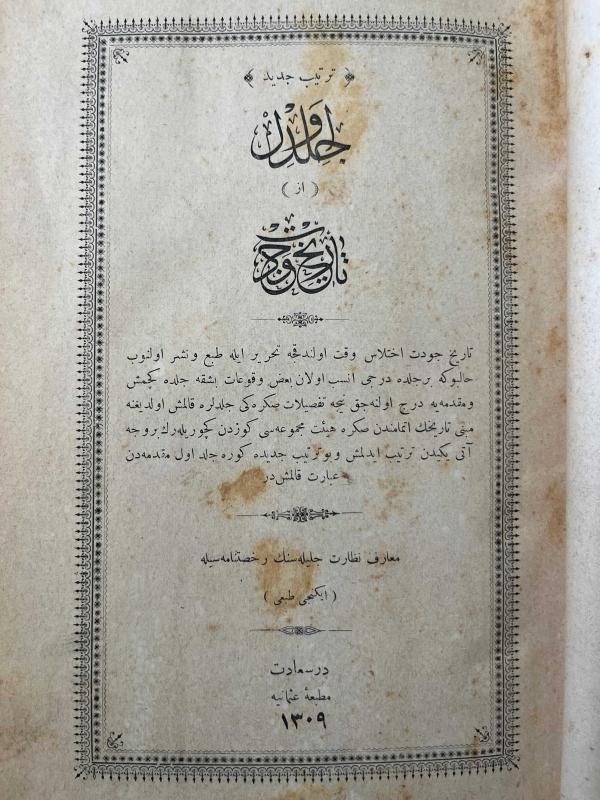 ﴿ ترتيب جديد ﴾
جلد اول
( از )
تاريخ جودت
تاريخ جودت اختلاس وقت اولندقجه تحرير ايله طبع و نشر اولنوب
حالبوكه بر جلده درجى انسب اولان بعض وقوعات بشقه جلده كچمش
و مقدمه يه درج اولنه جق نيجه تفصيلات صكره كى جلدلره قالمش اولديغنه
مبنى تاريخك اتمامندن صكره هيئت مجموعه سى كوزدن كچوريله رك بروجه
آتى يكيدن ترتيب ايدلمش و بو ترتيب جديده كوره جلد اول مقدمه دن
عبارت قالمش در
معارف نظارت جليله سنك رخصتنامه سيله
( ايكنجى طبعى )
درسعادت
مطبعۀ عثمانيه
١٣٠٩